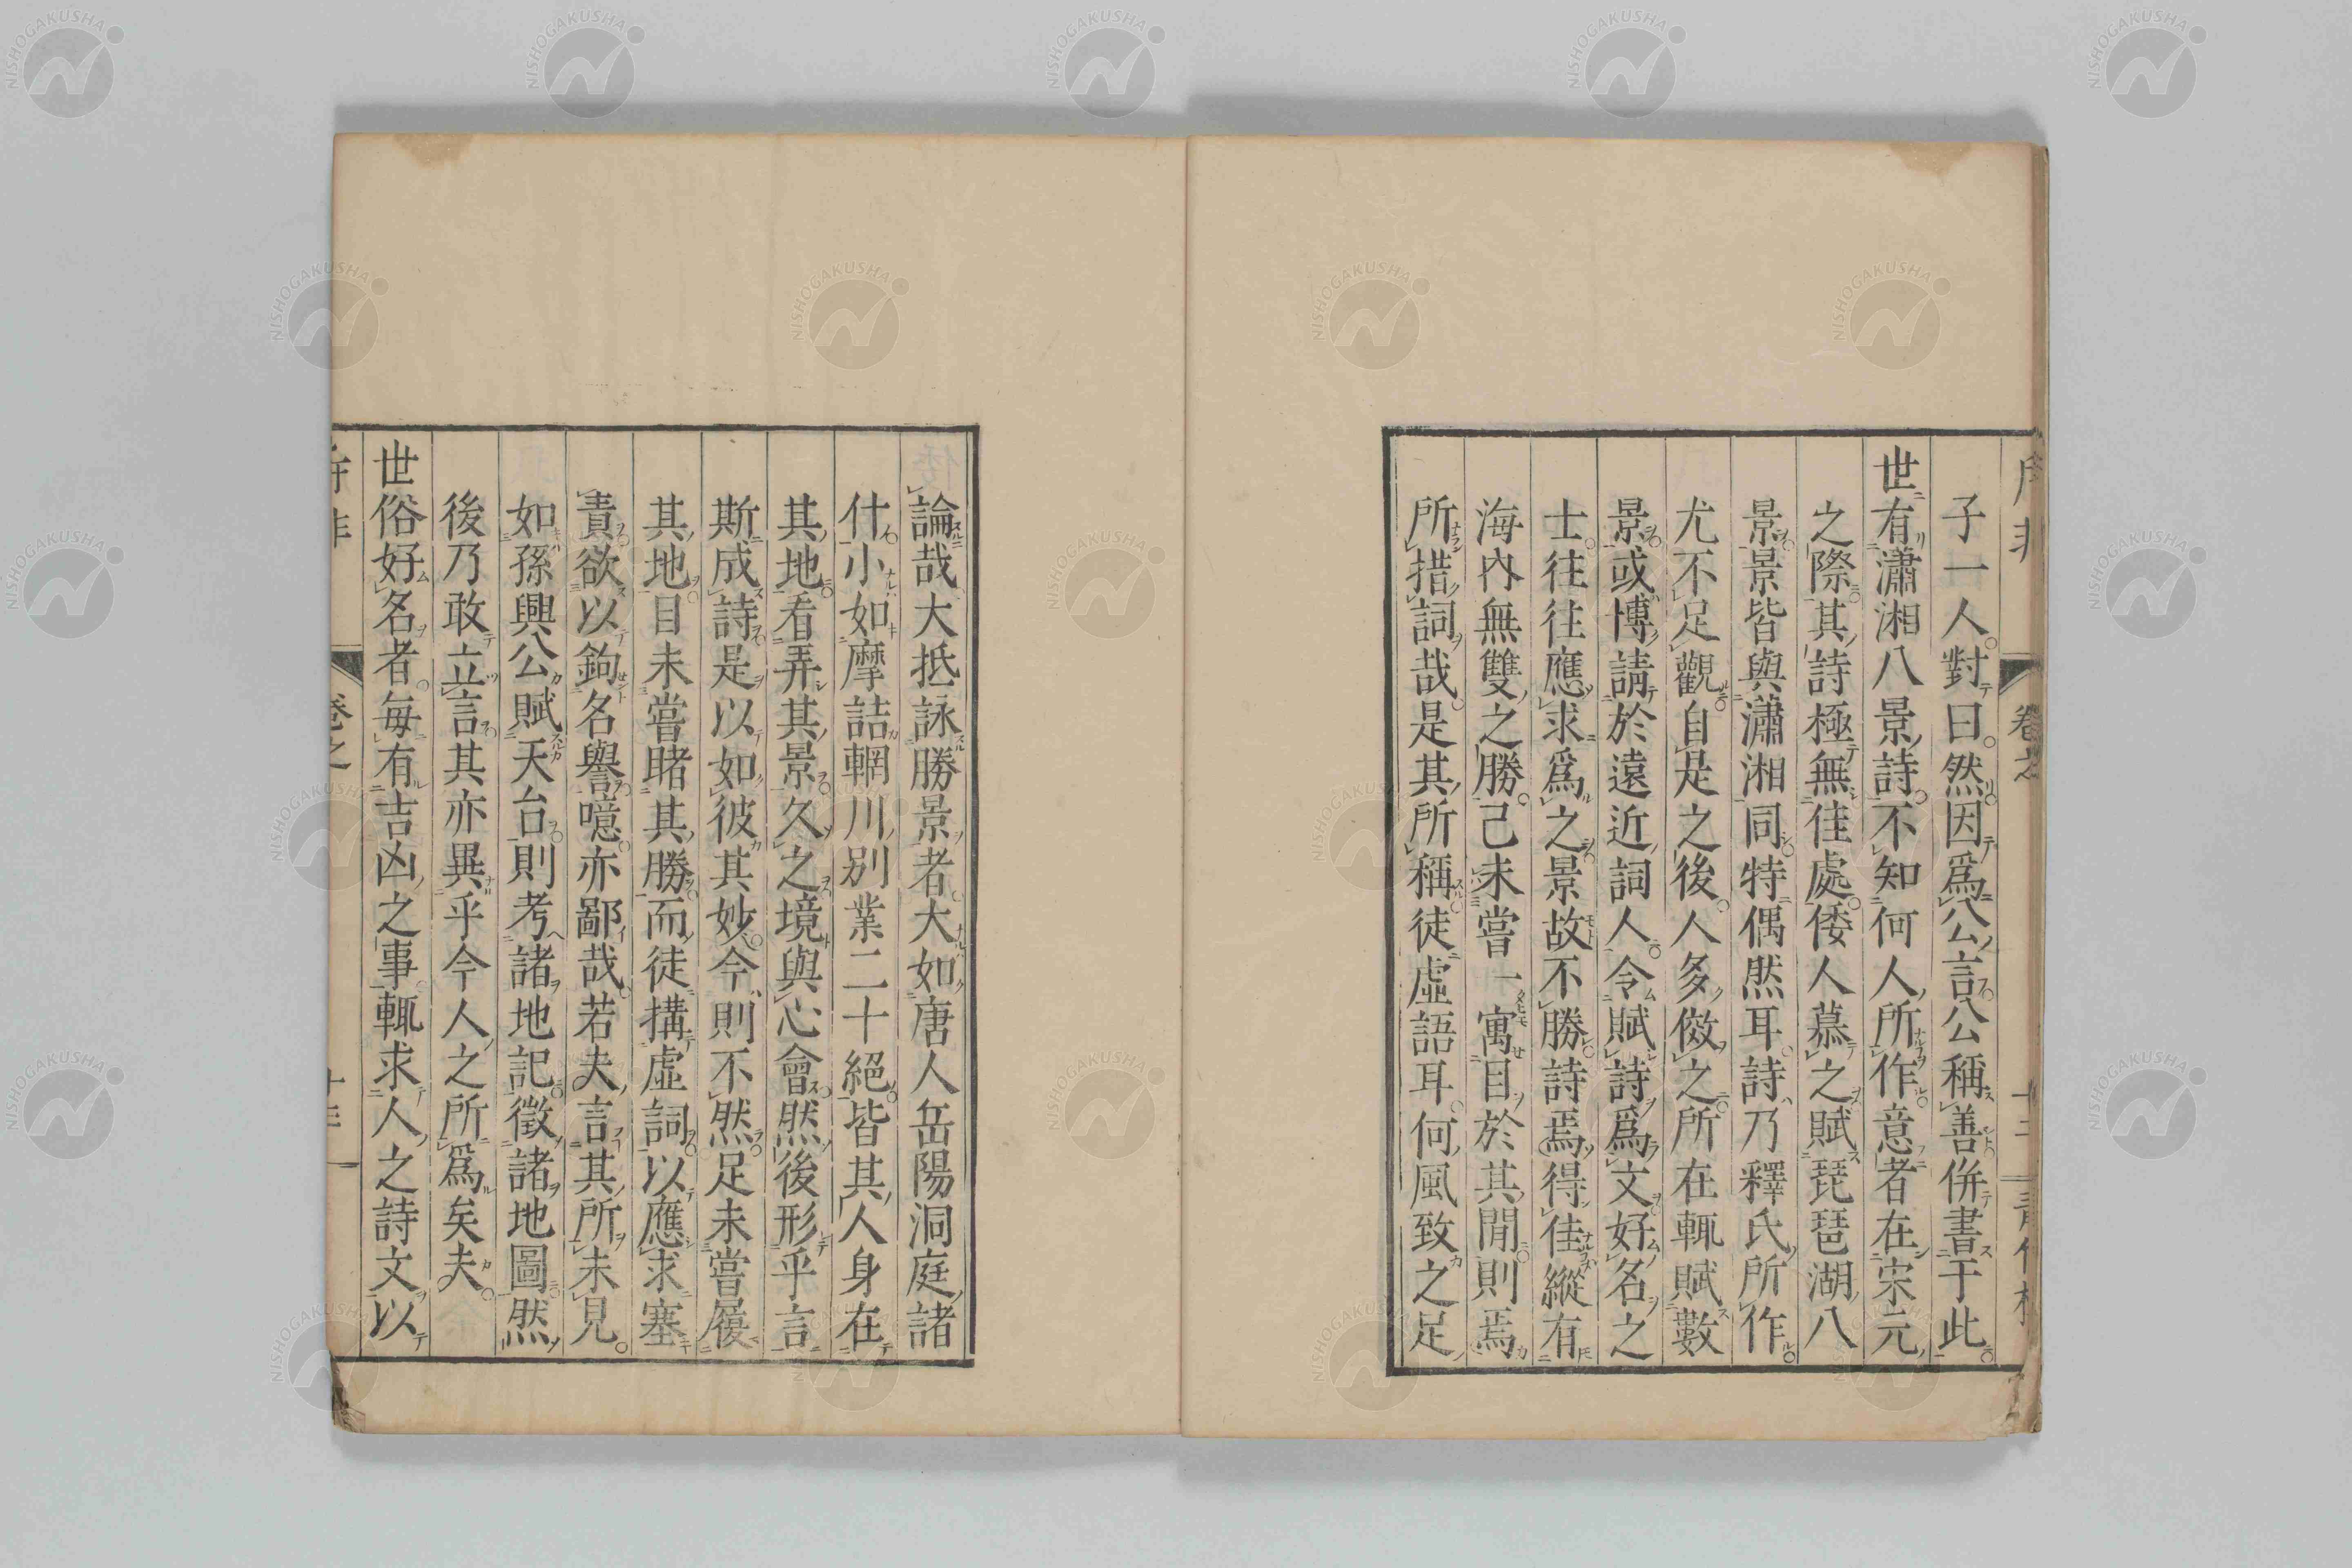 子一人對曰然因爲公言公稱善併書于此
世有瀟湘八景詩不知何人所作意者在宋元
之際其詩極無佳處倭人慕之賦琵琶湖八
景景皆與瀟湘同特偶然耳詩乃釋氏所作
尤不足觀自是之後人多傚之所在輒賦數
景或博請於遠近詞人令賦詩爲文好名之
士往往應求爲之景故不勝詩焉得佳縱有
海內無雙之勝己未嘗一寓目於其間則焉
所措詞哉是其所稱徒虛語耳何風致之足
論哉大抵詠勝景者大如唐人岳陽洞庭諸
什小如摩詰輞川別業二十絕皆其人身在
其地看弄其景久之境與心會然後形乎言
斯成詩是以如彼其妙今則不然足未嘗履
其地目未嘗睹其勝而徒搆虛詞以應求塞
責欲以鉤名譽噫亦鄙哉若夫言其所未見
如孫興公賦天台則考諸地記徵諸地圖然
後乃敢立言其亦異乎今人之所爲矣夫
世俗好名者每有吉凶之事輒求人之詩文以
卷之
NISHOGAKUSHA